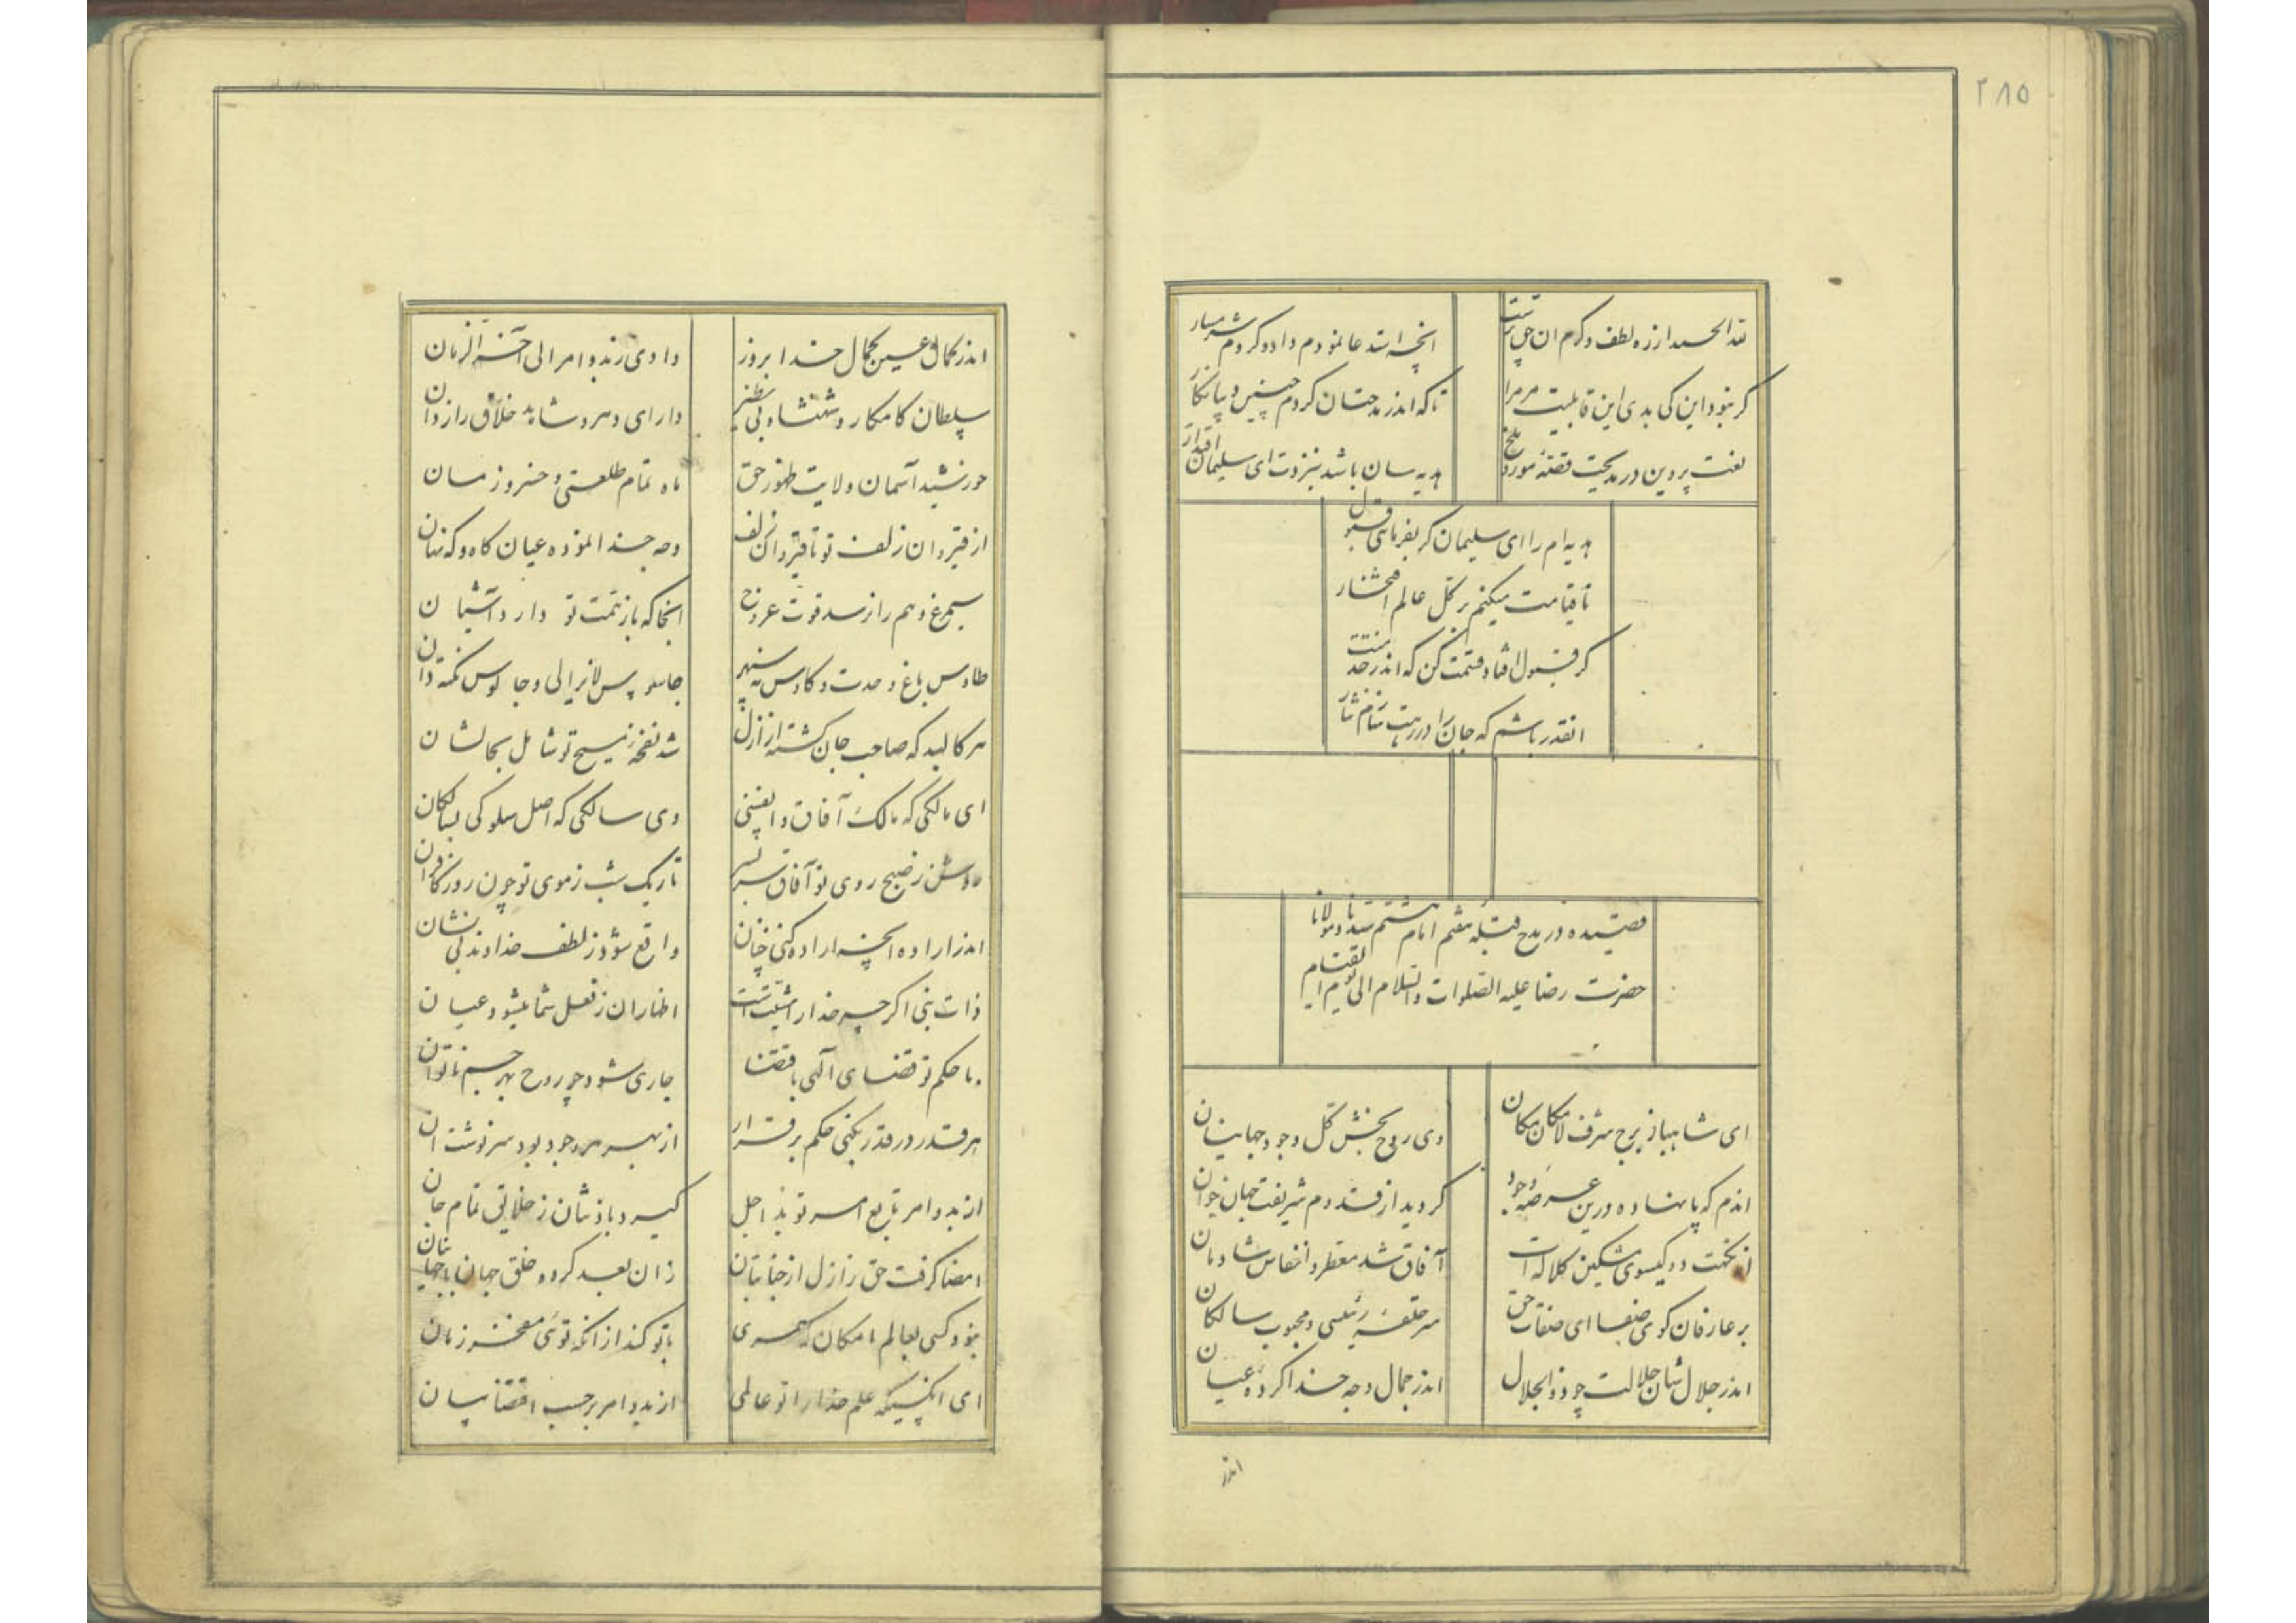 ۲۸۵
لله الحمد از ره لطف و کرم ان حق پرست
انچه استدعا نمودم داد و کردم شرمسار
کر نبود این کی بدی این قابلیت مر مرا
تا که اندر مدحتشان کردم چنین
نعت پروین در مدیحت قصهٔ مور و ملخ
هدیه سان باشد بنزدت ای سلیمان اقتدار
هدیه ام را ای سلیمان کر بفرمائی قبول
تا قیامت میکنم بر کل عالم افتخار
کر قبول افتاد قسمت کن که اندر خدمتت
انقدر باشم که جان را در رهت سازم نثار
قصیده در مدح قبله هفتم امام هشتم سیدنا و مولانا
حضرت رضا علیه الصلوات والسلام الی یوم القیام
ای شاهباز برج شرف لامکان مکان
وی روح بخش کل وجود جهانیان
اندم که پا نهاده درین عرصه وجود
کردید از قدوم شریفت جهان جوان
از نکهت دو کیسوی مشکین کلاله ات
آفاق شد معطر و انفاس شادمان
بر عارفان کوی صفا ای صفات حق
سر حلقه رئیسی و محبوب سالکان
اندر جلال شان جلالت چو ذوالجلال
اندر جمال وجه خدا کرده عیان
اندر
اندر کمال عین کمال خدا بروز
دادی زبدو امر الی آخر الزمان
سلطان کامکار و شهنشاه بی نظیر
دارای دهر و شاهد خلاق رازدان
خورشید آسمان ولایت ظهور حق
ماه تمام طلعتی و خسرو زمان
از قیروان زلف تو تا قیروان زلف
وجه خدا نموده عیان کاه و که نهان
سیمرغ وهم را نرسد قوت عروج
انجا که باز همت تو دارد آشیان
طاوس باغ وحدت و کاوس نه سپهر
جاسوس لانرالی و جالوس نکته دان
هر کالبد که صاحب جان کشته از ازل
شد نفخهٔ مسیح تو شامل بحالشان
ای مالکی که مالک آفاق و انفسی
وی سالکی که اصل سلوکی بسالکان
روشن ز صبح روی تو آفاق سر بسر
تاریک شب ز موی تو چون روز کافران
اندر اراده انچه اراده کنی چنان
واقع شود ز لطف خداوند بی نشان
ذات نبی اکر چه خدا را مشیت است
اظهار ان ز فعل شما میشود عیان
با حکم تو قضای آلهی باقتضا
جاری شود چو روح بهر جسم ناتوان
هر قدر در قدر بکنی حکم برقرار
از بهر هر وجود بود سرنوشت ان
از بدو امر تابع امر تو بد اجل
کیرد باذنشان ز خلایق تمام جان
امضا کرفت حق ز ازل از جنابتان
زان بعد کرده خلق جهان با جهانیان
نبود کسی بعالم امکان که همسری
با تو کند از انکه توئی مفخر زمان
ای انکسیکه علم خدا را تو عالمی
از بدو امر بر حسب اقتضا بیان